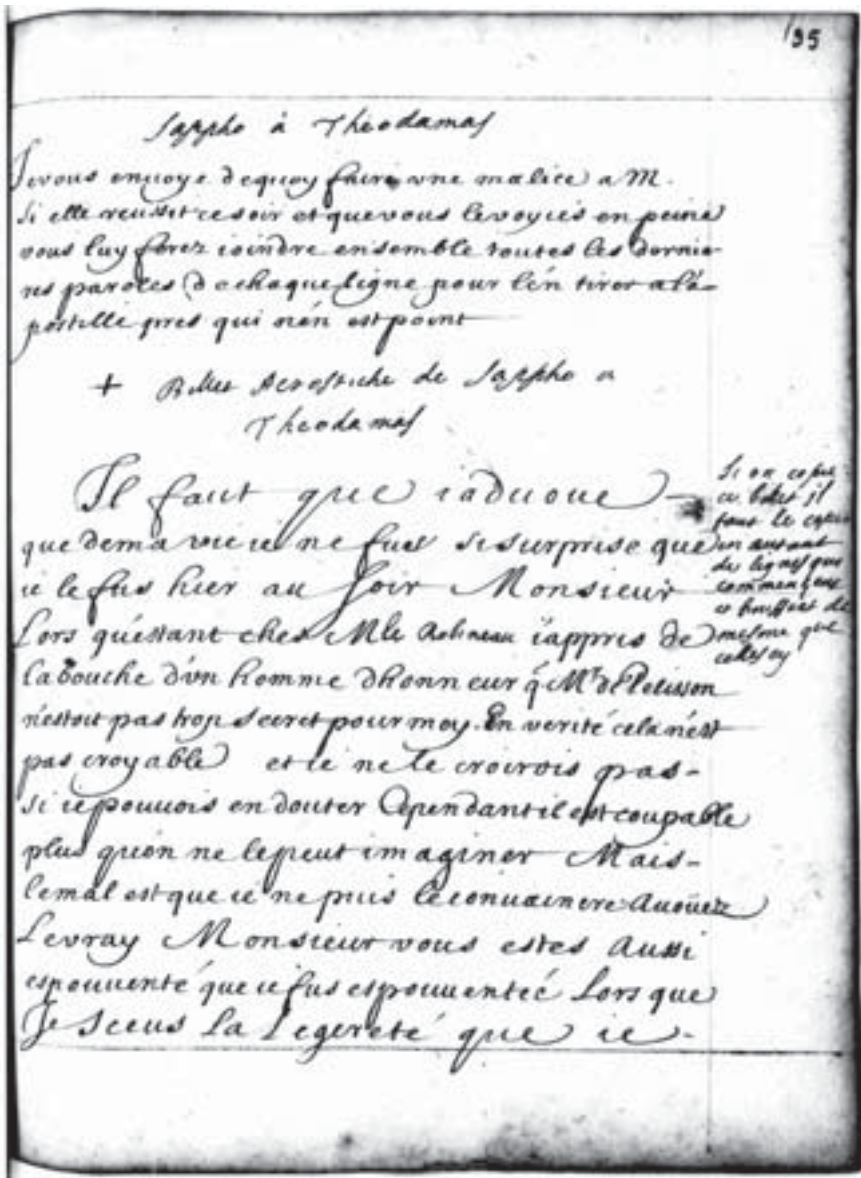 195
Sappho à Theodamas
Je vous enuoye dequoy faire vne malice a M.
Si elle reussit ce soir et que vous le voyiés en peine
vous luy ferez ioindre ensemble toutes les dernie-
res paroles de chaque ligne pour l'en tirer a la'-
postille pres qui n'en est point
+ Billet Acrostiche de Sappho a
Theodamas
Il faut que i'aduoue
que de ma vie ie ne fus si surprise que
ie le fus hier au soir Monsieur
Lors qu'estant ches Mlle Robineau i'appris de
la bouche d'vn homme d'honneur q̃ Mr de Pelisson
n'estoit pas trop secret pour moy. En verité cela n'est
pas croyable et ie ne le croirois pas-
si ie pouuois en douter Cependant il est coupable
plus qu'on ne le peut imaginer Mais-
le mal est que ie ne puis le conuaincre Auoüez
Le vray Monsieur vous estes Aussi
espouuenté que ie fus espouuenteé Lors que
Je sceus La Legereté que ie-
Si on copie
ce billet il
faut le copier
en autant
de lignes qui
commencent
et finissent de
mesme que
celles cy